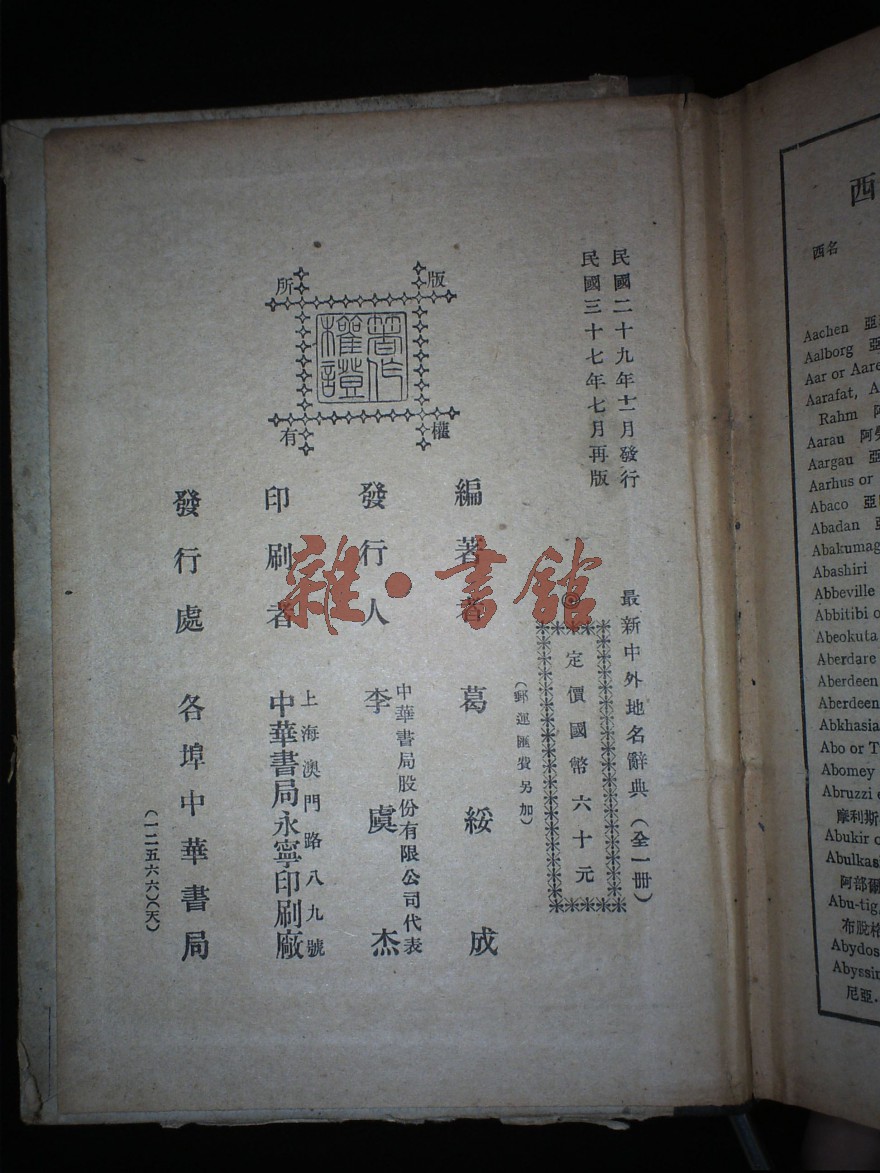 民國二十九年十一月發行
民國三十七年七月再版
最新中外地名辭典(全一冊)
定價國幣六十元
(郵運匯費另加)
版權所有
著作權證
編著者 葛綏成
發行人 中華書局股份有限公司代表
李虞杰
印刷者 上海澳門路八九號
中華書局永寧印刷廠
發行處 各埠中華書局
(一二五六六)(天)
雜·書館
西
西名
Aachen 亞
Aalborg 亞
Aar or Aare
Aarafat, A
Rahm 阿
Aarau 阿勞
Aargau 亞
Aarhus or
Abaco 亞
Abadan 亞
Abakumag
Abashiri
Abbeville
Abbitibi o
Abeokuta
Aberdare
Aberdeen
Aberdeen
Abkhasia
Abo or T
Abomey
Abruzzi e
摩利斯
Abukir o
Abulkas
阿部爾
Abu-tig,
布脫格
Abydos
Abyssin
尼亞.